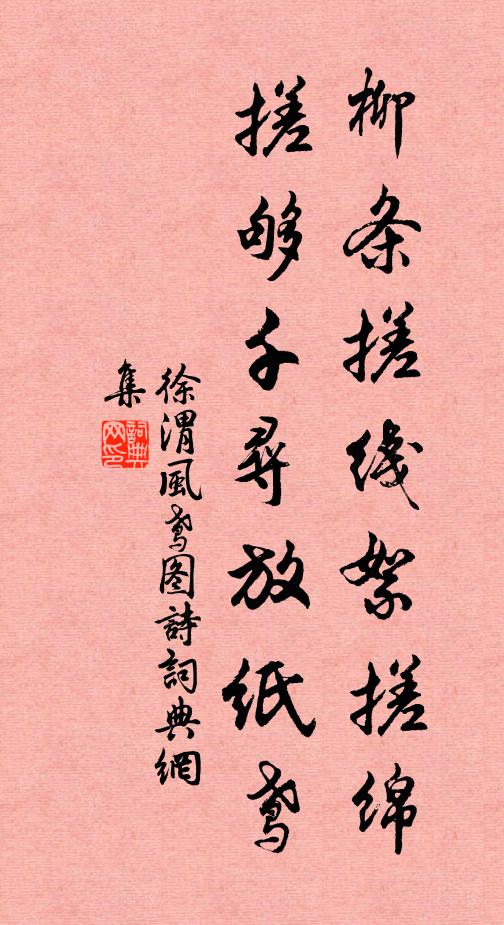 柳条搓线絮搓绵
搓够千尋放纸鸢
徐渭風鸢图詩詞典網
集
詞典网印